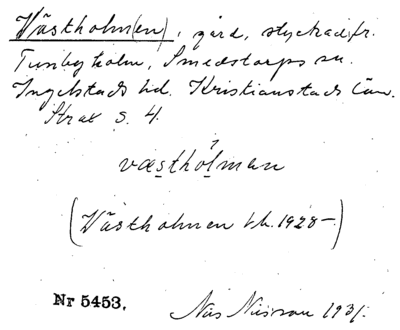 Västholm(en), gård, styckad fr.
Tunbyholm, Smedstorps sn.
Ingelstads hd. Kristianstads län.
Strax s. 4.
væstholmen
(Västholmen kb. 1928–)
Nr 5453. Nils Nilsson 1931.